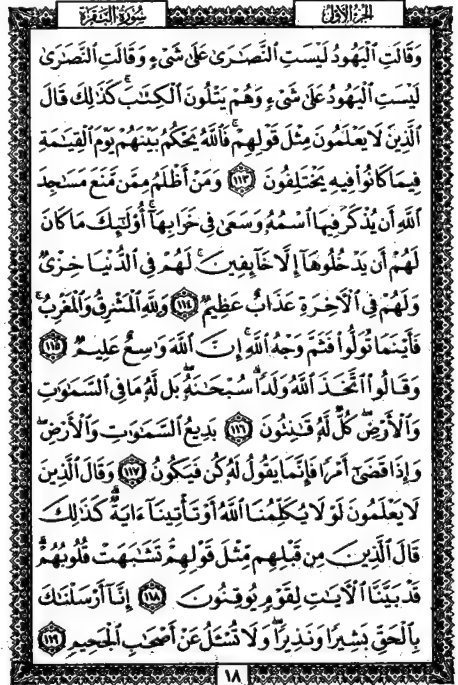 الجزء الأول سورة البقرة
وَقَالَتِ ٱلْيَهُودُ لَيْسَتِ ٱلنَّصَٰرَىٰ عَلَىٰ شَىْءٍ وَقَالَتِ ٱلنَّصَٰرَىٰ
لَيْسَتِ ٱلْيَهُودُ عَلَىٰ شَىْءٍ وَهُمْ يَتْلُونَ ٱلْكِتَٰبَ ۗ كَذَٰلِكَ قَالَ
ٱلَّذِينَ لَا يَعْلَمُونَ مِثْلَ قَوْلِهِمْ ۚ فَٱللَّهُ يَحْكُمُ بَيْنَهُمْ يَوْمَ ٱلْقِيَٰمَةِ
فِيمَا كَانُوا۟ فِيهِ يَخْتَلِفُونَ ١١٣ وَمَنْ أَظْلَمُ مِمَّن مَّنَعَ مَسَٰجِدَ
ٱللَّهِ أَن يُذْكَرَ فِيهَا ٱسْمُهُۥ وَسَعَىٰ فِى خَرَابِهَآ ۚ أُو۟لَٰٓئِكَ مَا كَانَ
لَهُمْ أَن يَدْخُلُوهَآ إِلَّا خَآئِفِينَ ۚ لَهُمْ فِى ٱلدُّنْيَا خِزْىٌ
وَلَهُمْ فِى ٱلْءَاخِرَةِ عَذَابٌ عَظِيمٌ ١١٤ وَلِلَّهِ ٱلْمَشْرِقُ وَٱلْمَغْرِبُ ۚ
فَأَيْنَمَا تُوَلُّوا۟ فَثَمَّ وَجْهُ ٱللَّهِ ۚ إِنَّ ٱللَّهَ وَٰسِعٌ عَلِيمٌ ١١٥
وَقَالُوا۟ ٱتَّخَذَ ٱللَّهُ وَلَدًا ۗ سُبْحَٰنَهُۥ ۖ بَل لَّهُۥ مَا فِى ٱلسَّمَٰوَٰتِ
وَٱلْأَرْضِ ۖ كُلٌّ لَّهُۥ قَٰنِتُونَ ١١٦ بَدِيعُ ٱلسَّمَٰوَٰتِ وَٱلْأَرْضِ ۖ
وَإِذَا قَضَىٰٓ أَمْرًا فَإِنَّمَا يَقُولُ لَهُۥ كُن فَيَكُونُ ١١٧ وَقَالَ ٱلَّذِينَ
لَا يَعْلَمُونَ لَوْلَا يُكَلِّمُنَا ٱللَّهُ أَوْ تَأْتِينَآ ءَايَةٌ ۗ كَذَٰلِكَ
قَالَ ٱلَّذِينَ مِن قَبْلِهِم مِّثْلَ قَوْلِهِمْ ۘ تَشَٰبَهَتْ قُلُوبُهُمْ ۗ
قَدْ بَيَّنَّا ٱلْءَايَٰتِ لِقَوْمٍ يُوقِنُونَ ١١٨ إِنَّآ أَرْسَلْنَٰكَ
بِٱلْحَقِّ بَشِيرًا وَنَذِيرًا ۖ وَلَا تُسْـَٔلُ عَنْ أَصْحَٰبِ ٱلْجَحِيمِ ١١٩
١٨